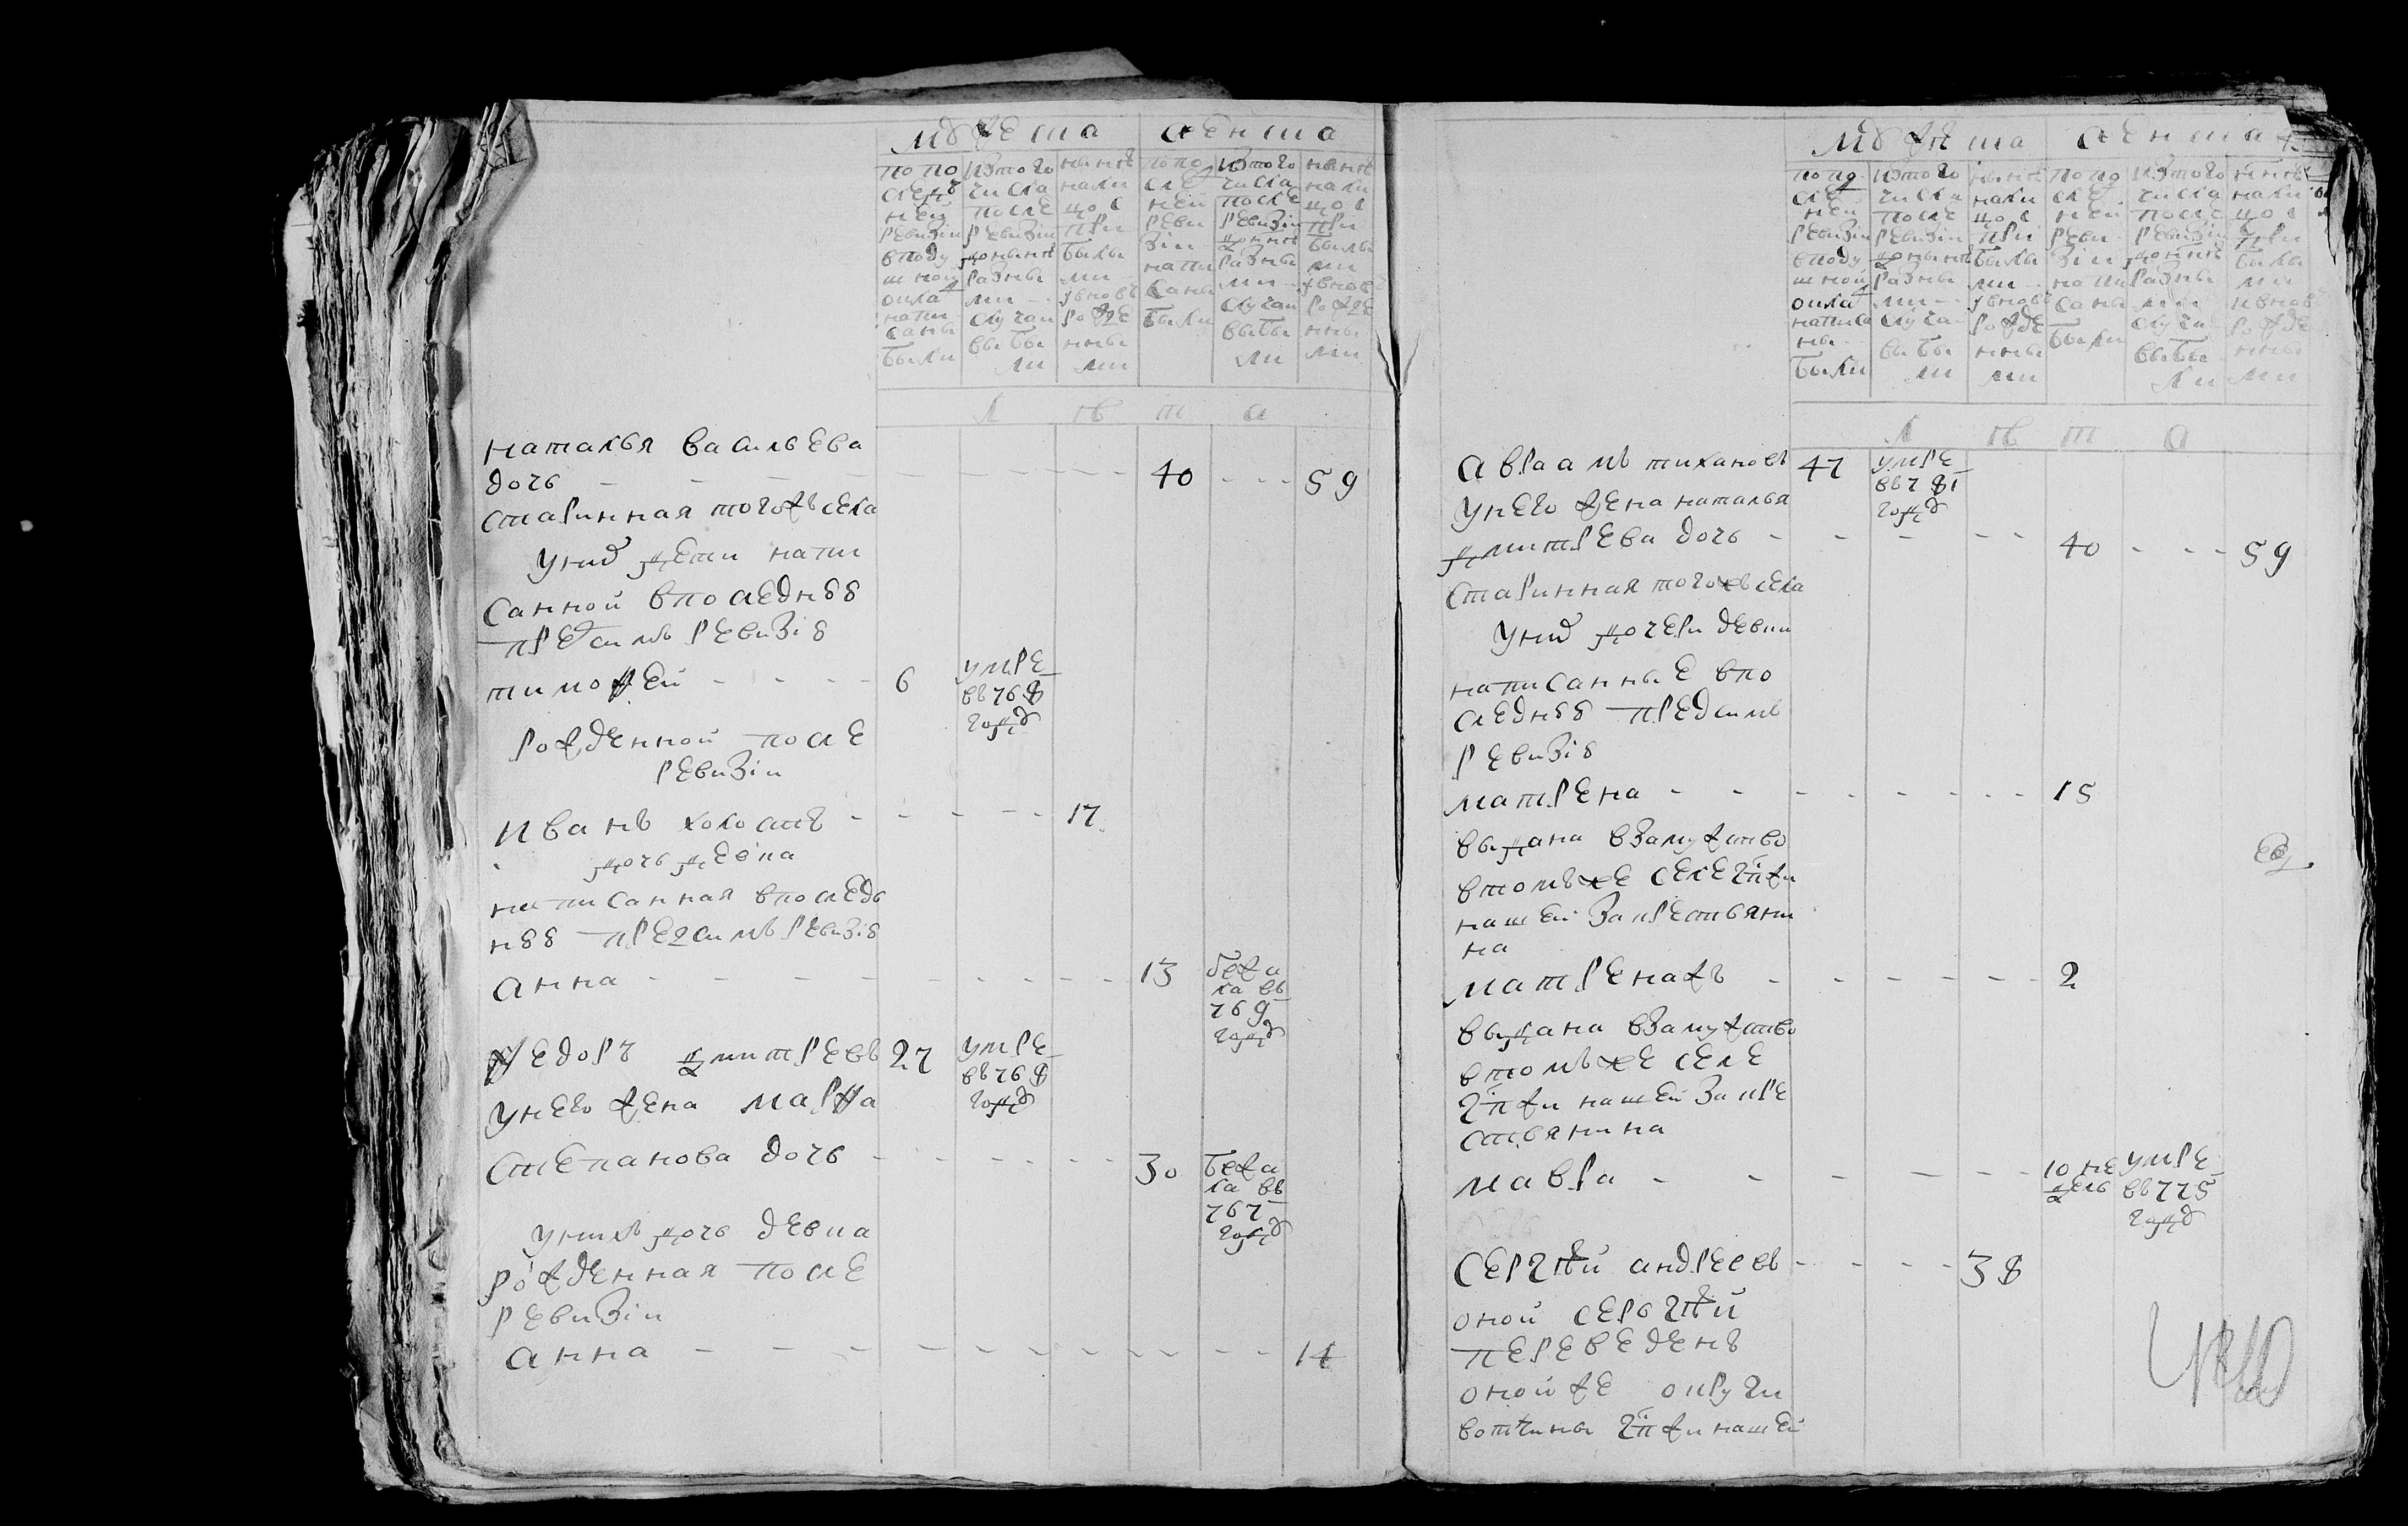 мужеска женска
по по
следъ
ней
ревизіи
въ поду
шной
оклад
напи
саны
были
изъ того
числа
после
ревизіи
до ныне
разны
ми
случаи
выбы
ли
ныне
нали
цо с
при
былы
ми
и вновь
рожде
нны
ми
по по
след
ней
реви
зіи
напи
саны
были
изъ того
числа
после
ревизіи
до ныне
разны
ми
случаи
выбы
ли
ныне
нали
цо с
при
былы
ми
и вновь
рожде
нны
ми
л ѣ т а
наталья васильева
дочь - - - - 40 - - - 59
старинная тогожъ села
у них дети напи
санной в последнѣѣ
пред симъ ревизіѣ
тимофей - - - - 6 умре
въ 768
году
рожденной после
ревизіи
иванъ холостъ - - - - 17
дочь девка
написанная в последь
нѣѣ пред симъ ревизіѣ
анна - - - - 13 бежа
ла въ
769
году
федоръ дмитревъ 27 умре
въ 768
году
у него жена марфа
степанова дочь - - - - 30 бежа
ла въ
767
году
у нихъ дочь девка
рожденная после
ревизіи
анна - - - - 14
мужеска женска
по по
след
ней
ревизіи
въ поду
шной
оклад
написа
ны
были
изъ того
числа
после
ревизіи
до ныне
разны
ми
случа
выбы
ли
ныне
нали
цо с
при
былы
ми
и вновь
рожде
нны
ми
по по
след
ней
реви
зіи
напи
саны
были
изъ того
числа
после
ревизіи
до ныне
разны
ми
случа
выбы
ли
ныне
нали
цо с
при
былы
ми
и вновь
рожде
нны
ми
л ѣ т а
авраамъ тихановъ 47 умре
въ 781
году
у него жена наталья
дмитрева дочь - - - - 40 - - - 59
старинная тогожъ села
у них дочери девки
написанные в по
следнѣѣ пред симъ
ревизіѣ
матрена - - - - 15
выдана в замужство
в томъ же селе гпжи
нашей за крестьяни
на
матрена жъ - - - - 2
выдана в замужство
в томъ же селе
гпжи нашей за кре
стьянина
мавра - - - - 10 не
дель умре
въ 775
году
сергѣй андреевъ - - - - 38
оной серьгѣй
переведенъ
оной же округи
вотчины гпжи нашей